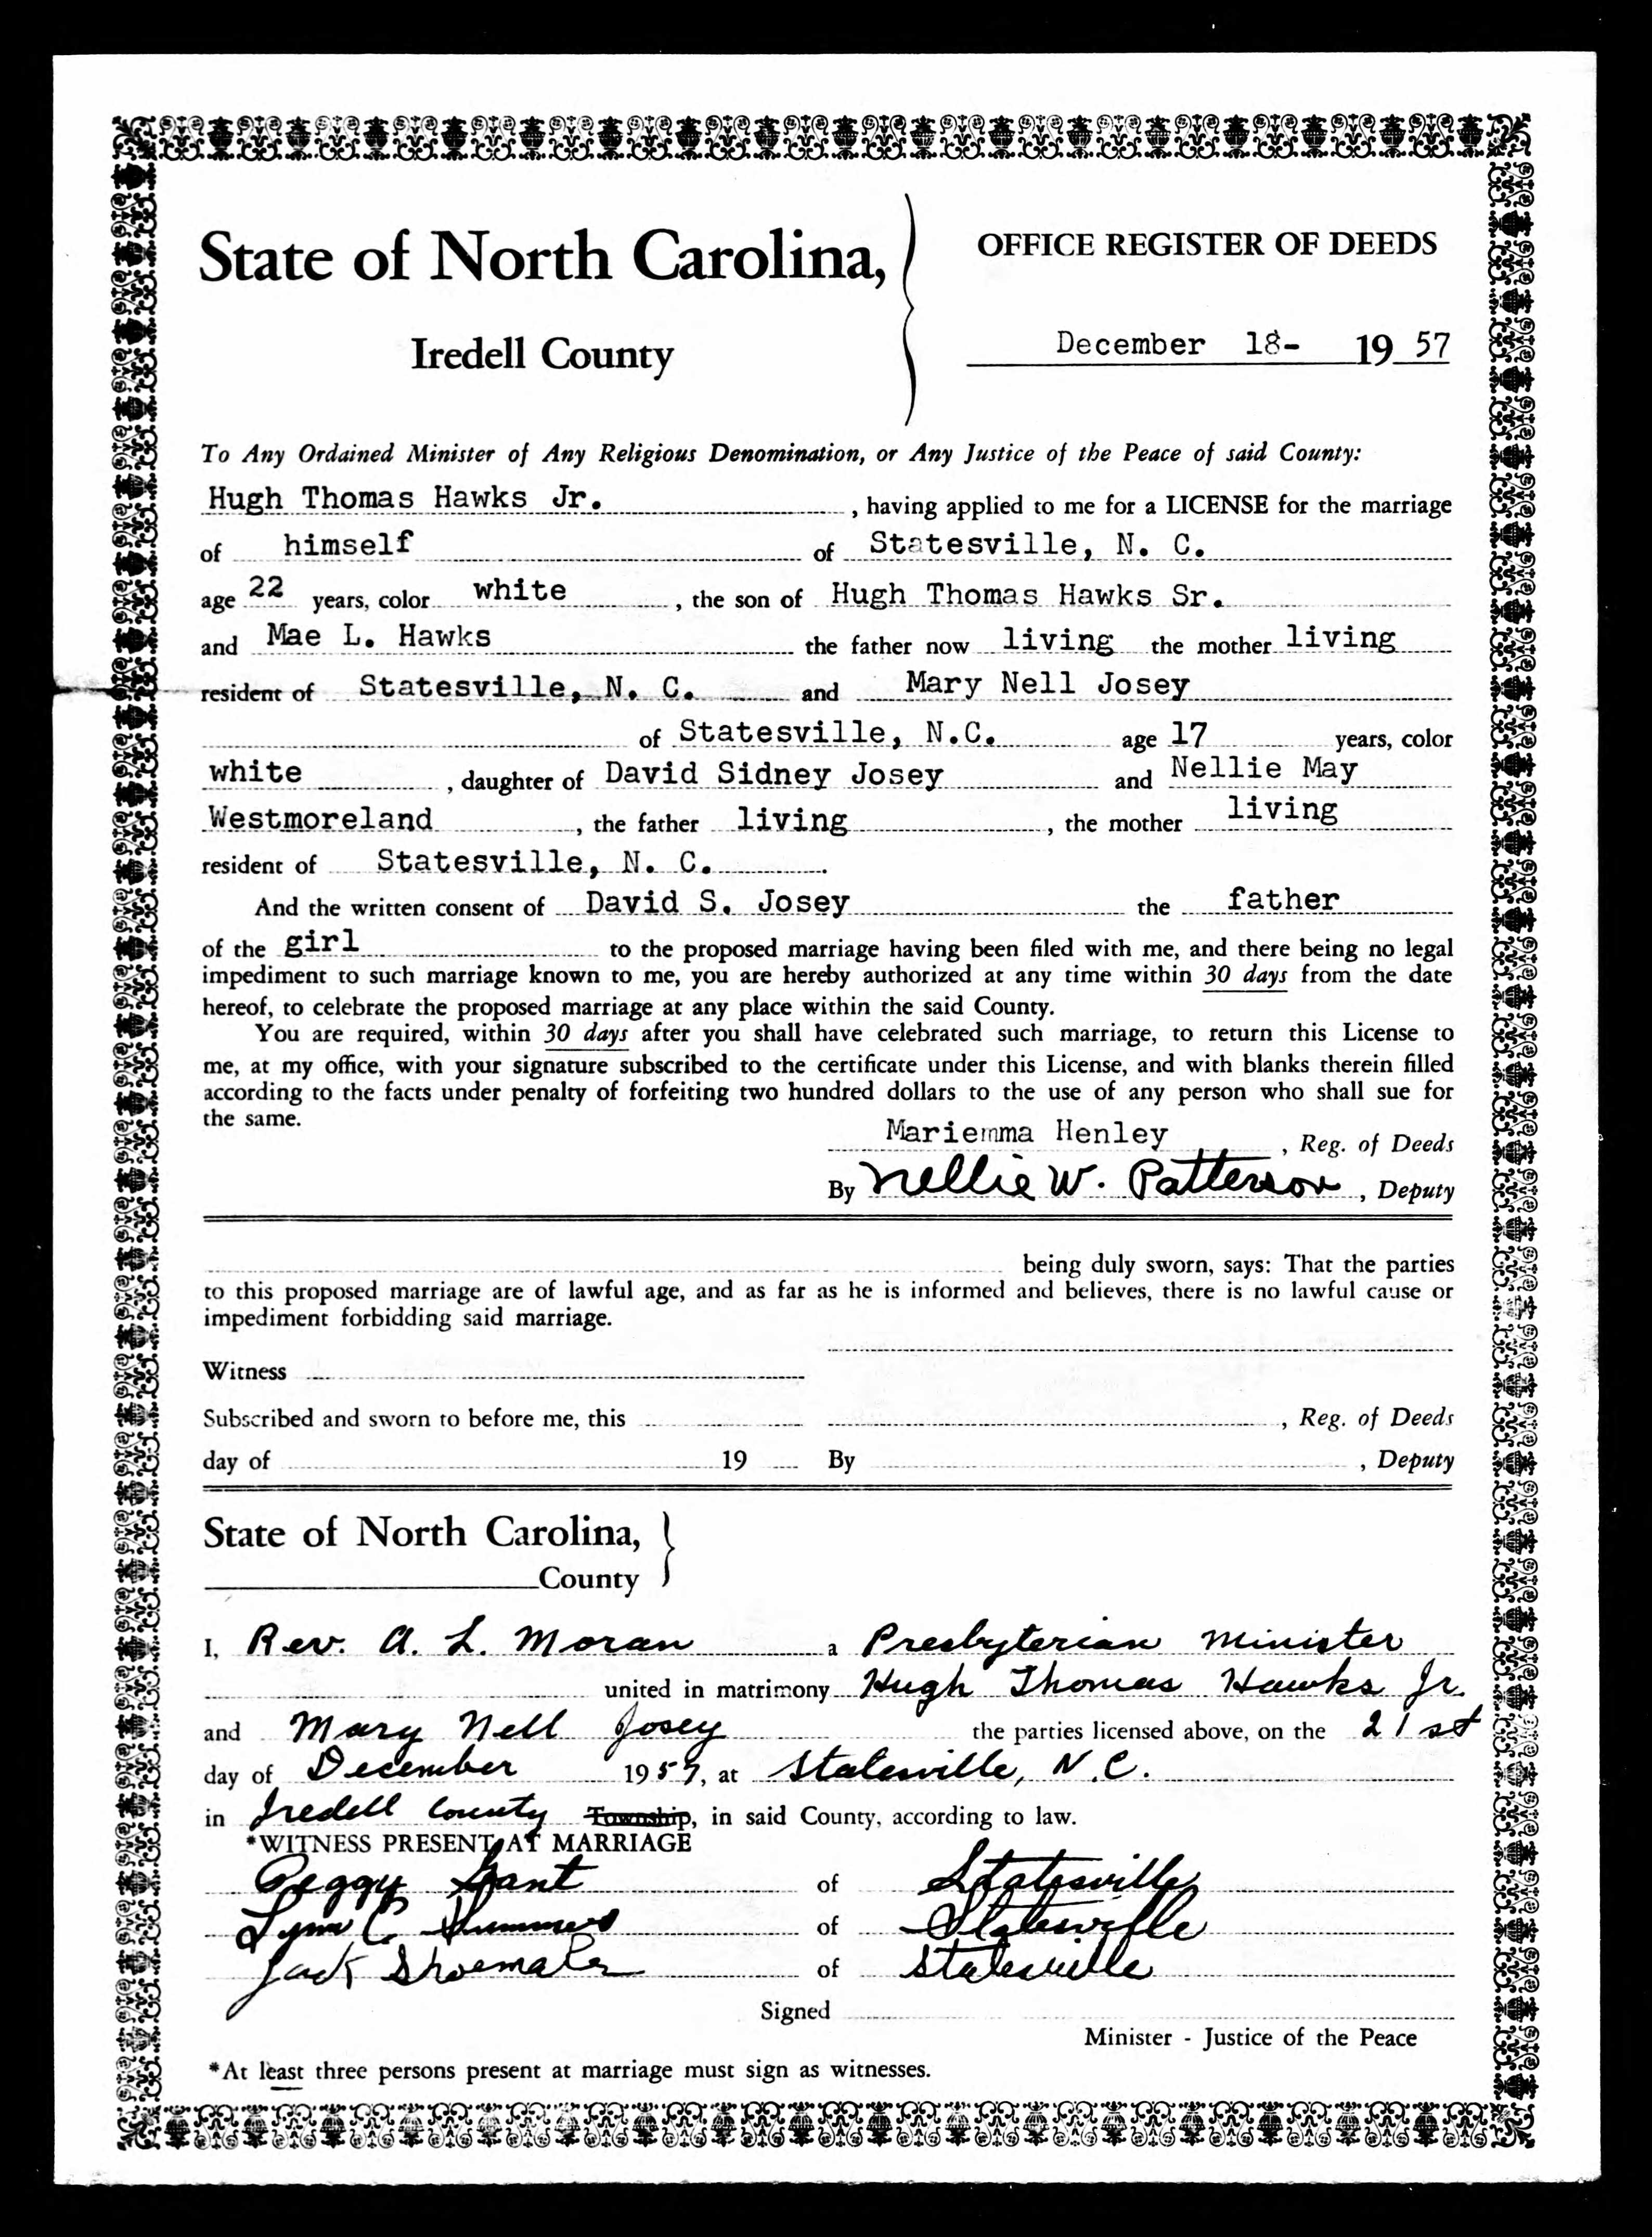 State of North Carolina,
Iredell County
OFFICE REGISTER OF DEEDS
December 18- 19 57
To Any Ordained Minister of Any Religious Denomination, or Any Justice of the Peace of said County:
Hugh Thomas Hawks Jr. , having applied to me for a LICENSE for the marriage
of himself of Statesville, N. C.
age 22 years, color white , the son of Hugh Thomas Hawks Sr.
and Mae L. Hawks the father now living the mother living
resident of Statesville, N. C. and Mary Nell Josey
of Statesville, N.C. age 17 years, color
white , daughter of David Sidney Josey and Nellie May
Westmoreland , the father living , the mother living
resident of Statesville, N. C. .
And the written consent of David S. Josey the father
of the girl to the proposed marriage having been filed with me, and there being no legal
impediment to such marriage known to me, you are hereby authorized at any time within 30 days from the date
hereof, to celebrate the proposed marriage at any place within the said County.
You are required, within 30 days after you shall have celebrated such marriage, to return this License to
me, at my office, with your signature subscribed to the certificate under this License, and with blanks therein filled
according to the facts under penalty of forfeiting two hundred dollars to the use of any person who shall sue for
the same.
Mariemma Henley , Reg. of Deeds
By Nellie W. Patterson , Deputy
being duly sworn, says: That the parties
to this proposed marriage are of lawful age, and as far as he is informed and believes, there is no lawful cause or
impediment forbidding said marriage.
Witness
Subscribed and sworn to before me, this , Reg. of Deeds
day of 19 By , Deputy
State of North Carolina,
County
I, Rev. A. L. Moran a Presbyterian Minister
united in matrimony Hugh Thomas Hawks Jr.
and Mary Nell Josey the parties licensed above, on the 21st
day of December 1957, at Statesville, N.C.
in Iredell County Township, in said County, according to law.
*WITNESS PRESENT AT MARRIAGE
Peggy Gant of Statesville
Lynn C. Summers of Statesville
Jack Shoemaker of Statesville
Signed
Minister - Justice of the Peace
*At least three persons present at marriage must sign as witnesses.